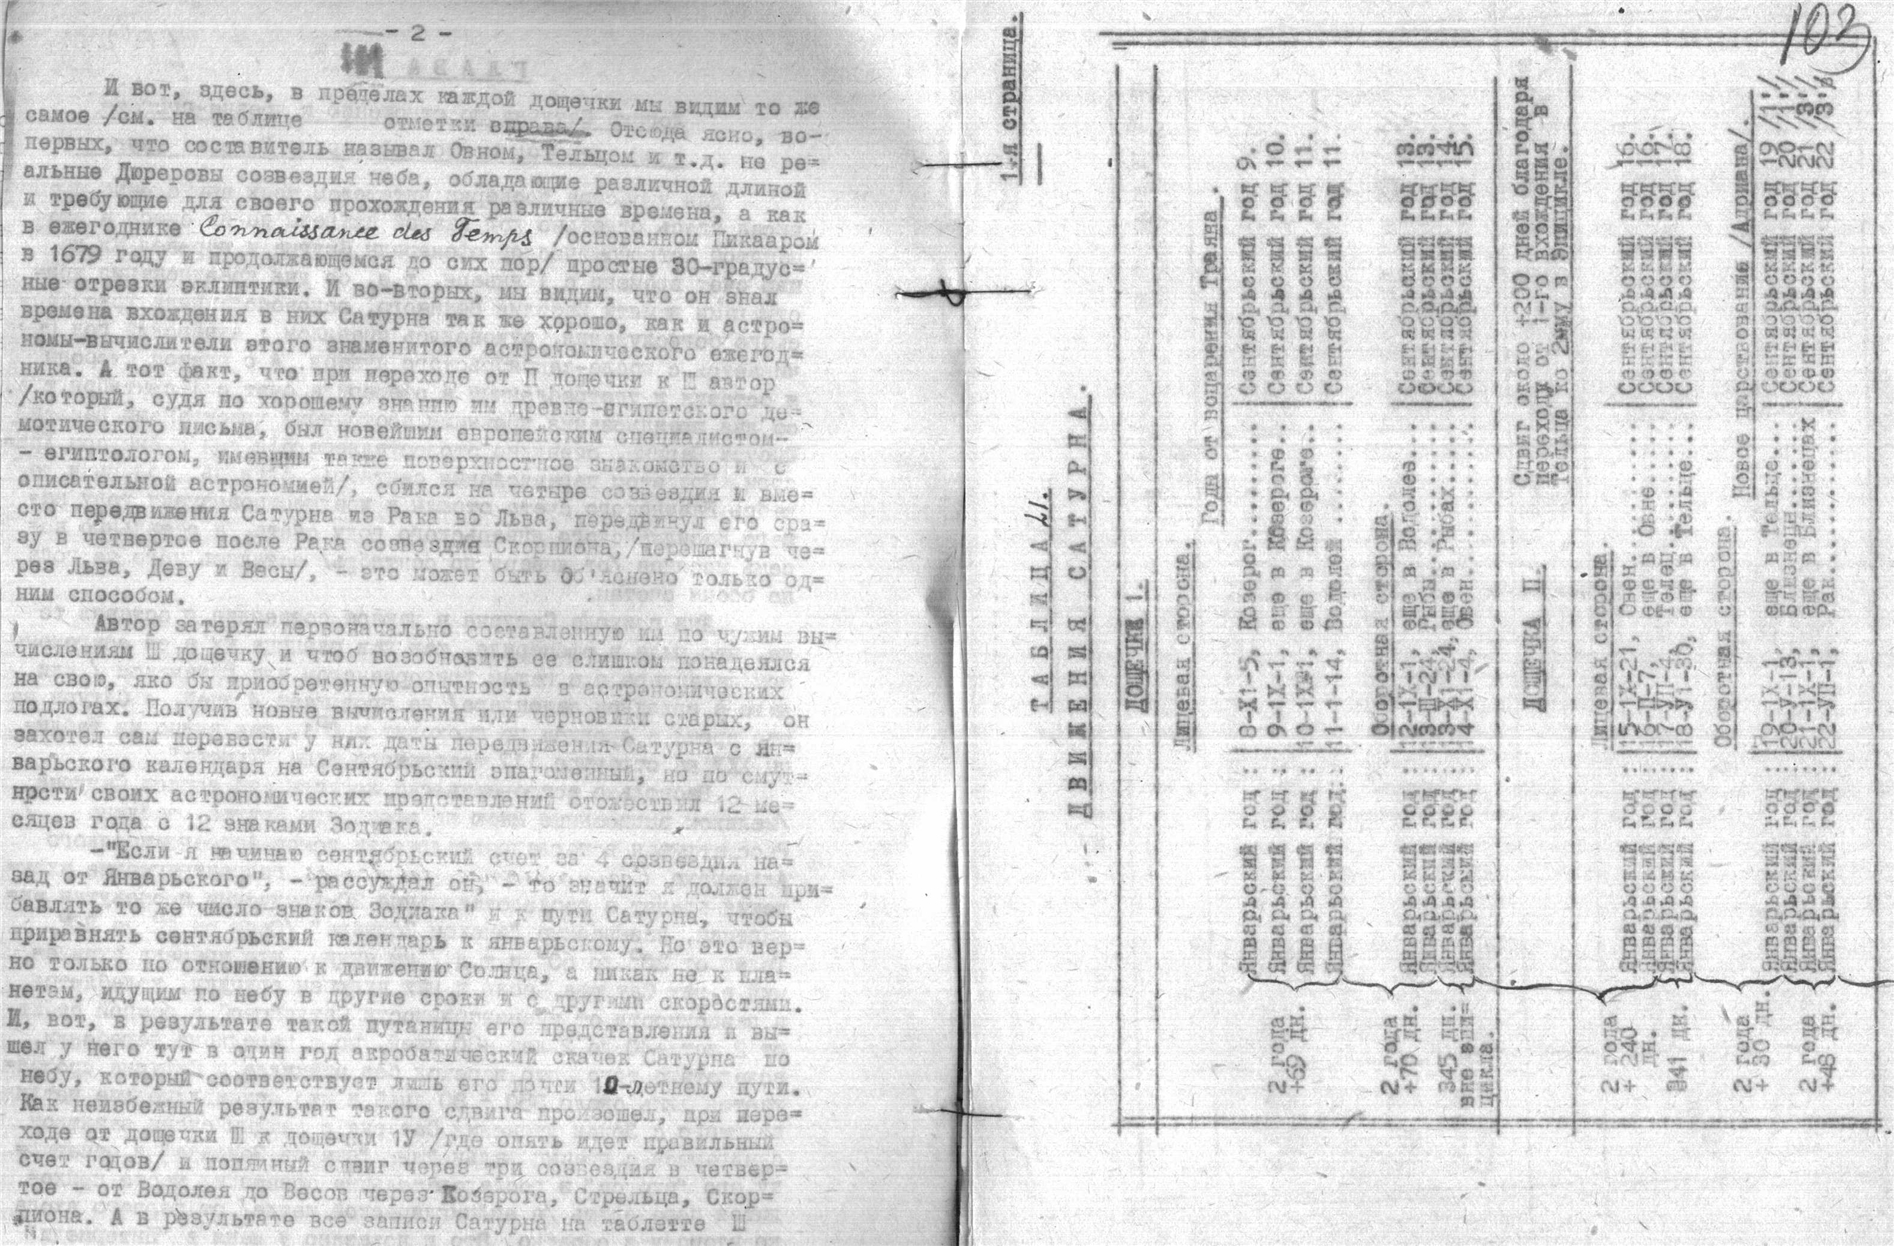 - 2 -
И вот, здесь, в пределах каждой дощечки мы видим то же
самое /см. на таблице отметки справа/. Отсюда ясно, во-
первых, что составитель называл Овном, Тельцом и т.д. не ре=
альные Дюреровы созвездия неба, обладающие различной длиной
и требующие для своего прохождения различные времена, а как
в ежегоднике Connaissance des Temps /основанном Пикааром
в 1679 году и продолжающемся до сих пор/ простые 30-градус=
ные отрезки эклиптики. И во-вторых, мы видим, что он знал
времена вхождения в них Сатурна так же хорошо, как и астро=
номы-вычислители этого знаменитого астрономического ежегод=
ника. А тот факт, что при переходе от П дощечки к Ш автор
/который, судя по хорошему знанию им древне-египетского де=
мотического письма, был новейшим европейским специалистом-
- египтологом, имевшим также поверхностное знакомство и с
описательной астрономией/, сбился на четыре созвездия и вме=
сто передвижения Сатурна из Рака во Льва, передвинул его сра=
зу в четвертое после Рака созвездия Скорпиона,/перешагнув че=
рез Льва, Деву и Весы/, - это может быть об'яснено только од=
ним способом.
Автор затерял первоначально составленную им по чужим вы=
числениям Ш дощечку и чтоб возобновить ее слишком понадеялся
на свою, яко бы приобретенную опытность в астрономических
подлогах. Получив новые вычисления или черновики старых, он
захотел сам перевести у них даты передвижения Сатурна с Ян=
варьского календаря на Сентябрьский эпагоменный, но по смут=
ности своих астрономических представлений отожествил 12 ме=
сяцев года с 12 знаками Зодиака.
-"Если я начинаю сентябрьский счет за 4 созвездия на=
зад от Январьского", - рассуждал он, - то значит я должен при=
бавлять то же число знаков Зодиака" и к пути Сатурна, чтобы
приравнять сентябрьский календарь к январьскому. Но это вер=
но только по отношению к движению Солнца, а никак не к пла=
нетам, идущим по небу в другие сроки и с другими скоростями.
И, вот, в результате такой путаницы его представления и вы=
шел у него тут в один год акробатический скачек Сатурна по
небу, который соответствует лишь его почти 10-летнему пути.
Как неизбежный результат такого сдвига произошел, при пере=
ходе от дощечки Ш к дощечки 1У /где опять идет правильный
счет годов/ и попятный сдвиг через три созвездия в четвер=
тое - от Водолея до Весов через Козерога, Стрельца, Скор=
пиона. А в результате все записи Сатурна на таблетте Ш
103
1-я страница.
ТАБЛИЦА L1.
ДВИЖЕНИЯ САТУРНА.
ДОЩЕЧКИ 1.
Лицевая сторона.
Года от воцарения Траяна.
2 года +69 дн.
Январьский год : 8-X1-5, Козерог.......... Сентябрьский год 9.
Январьский год : 9-1X-1, еще в Козероге... Сентябрьский год 10.
Январьский год : 10-1X-1, еще в Козероге... Сентябрьский год 11.
Январьский год: 11-1-14, Водолей ......... Сентябрьский год 11.
Оборотная сторона.
2 года +70 дн.
Январьский год : 12-1X-1, еще в Водолее... Сентябрьский год 13.
Январьский год : 13-Ш-24, Рыбы............ Сентябрьский год 13.
345 дн. вне эпи= цикла.
Январьский год : 13-X1-24, еще в Рыбах..... Сентябрьский год 14.
Январьский год : 14-X1-4, Овен............ Сентябрьский год 15.
ДОЩЕЧКА П.
Сдвиг около +200 дней благодаря
переходу от 1-го вхождения в
Тельца ко 2му в эпицикле.
Лицевая сторона.
2 года + 240 дн.
Январьский год : 15-1X-21, Овен........... Сентябрьский год 16.
Январьский год : 16-П-7, еще в Овне....... Сентябрьский год 16.
Январьский год : 17-УП-4, Телец........... Сентябрьский год 17.
841 дн.
Январьский год : 18-У1-30, еще в Тельце... Сентябрьский год 18.
Оборотная сторона.
Новое царствование /Адриана/.
2 года + 30 дн.
Январьский год : 19-1X-1, еще в Тельце.... Сентябрьский год 19 /1"/
Январьский год : 20-У-13, Близнецы........ Сентябрьский год 20 /1"/
2 года +48 дн.
Январьский год : 21-1X-1, еще в Близнецах Сентябрьский год 21 /3"/
Январьский год : 22-УП-1, Рак............. Сентябрьский год 22 /3"в